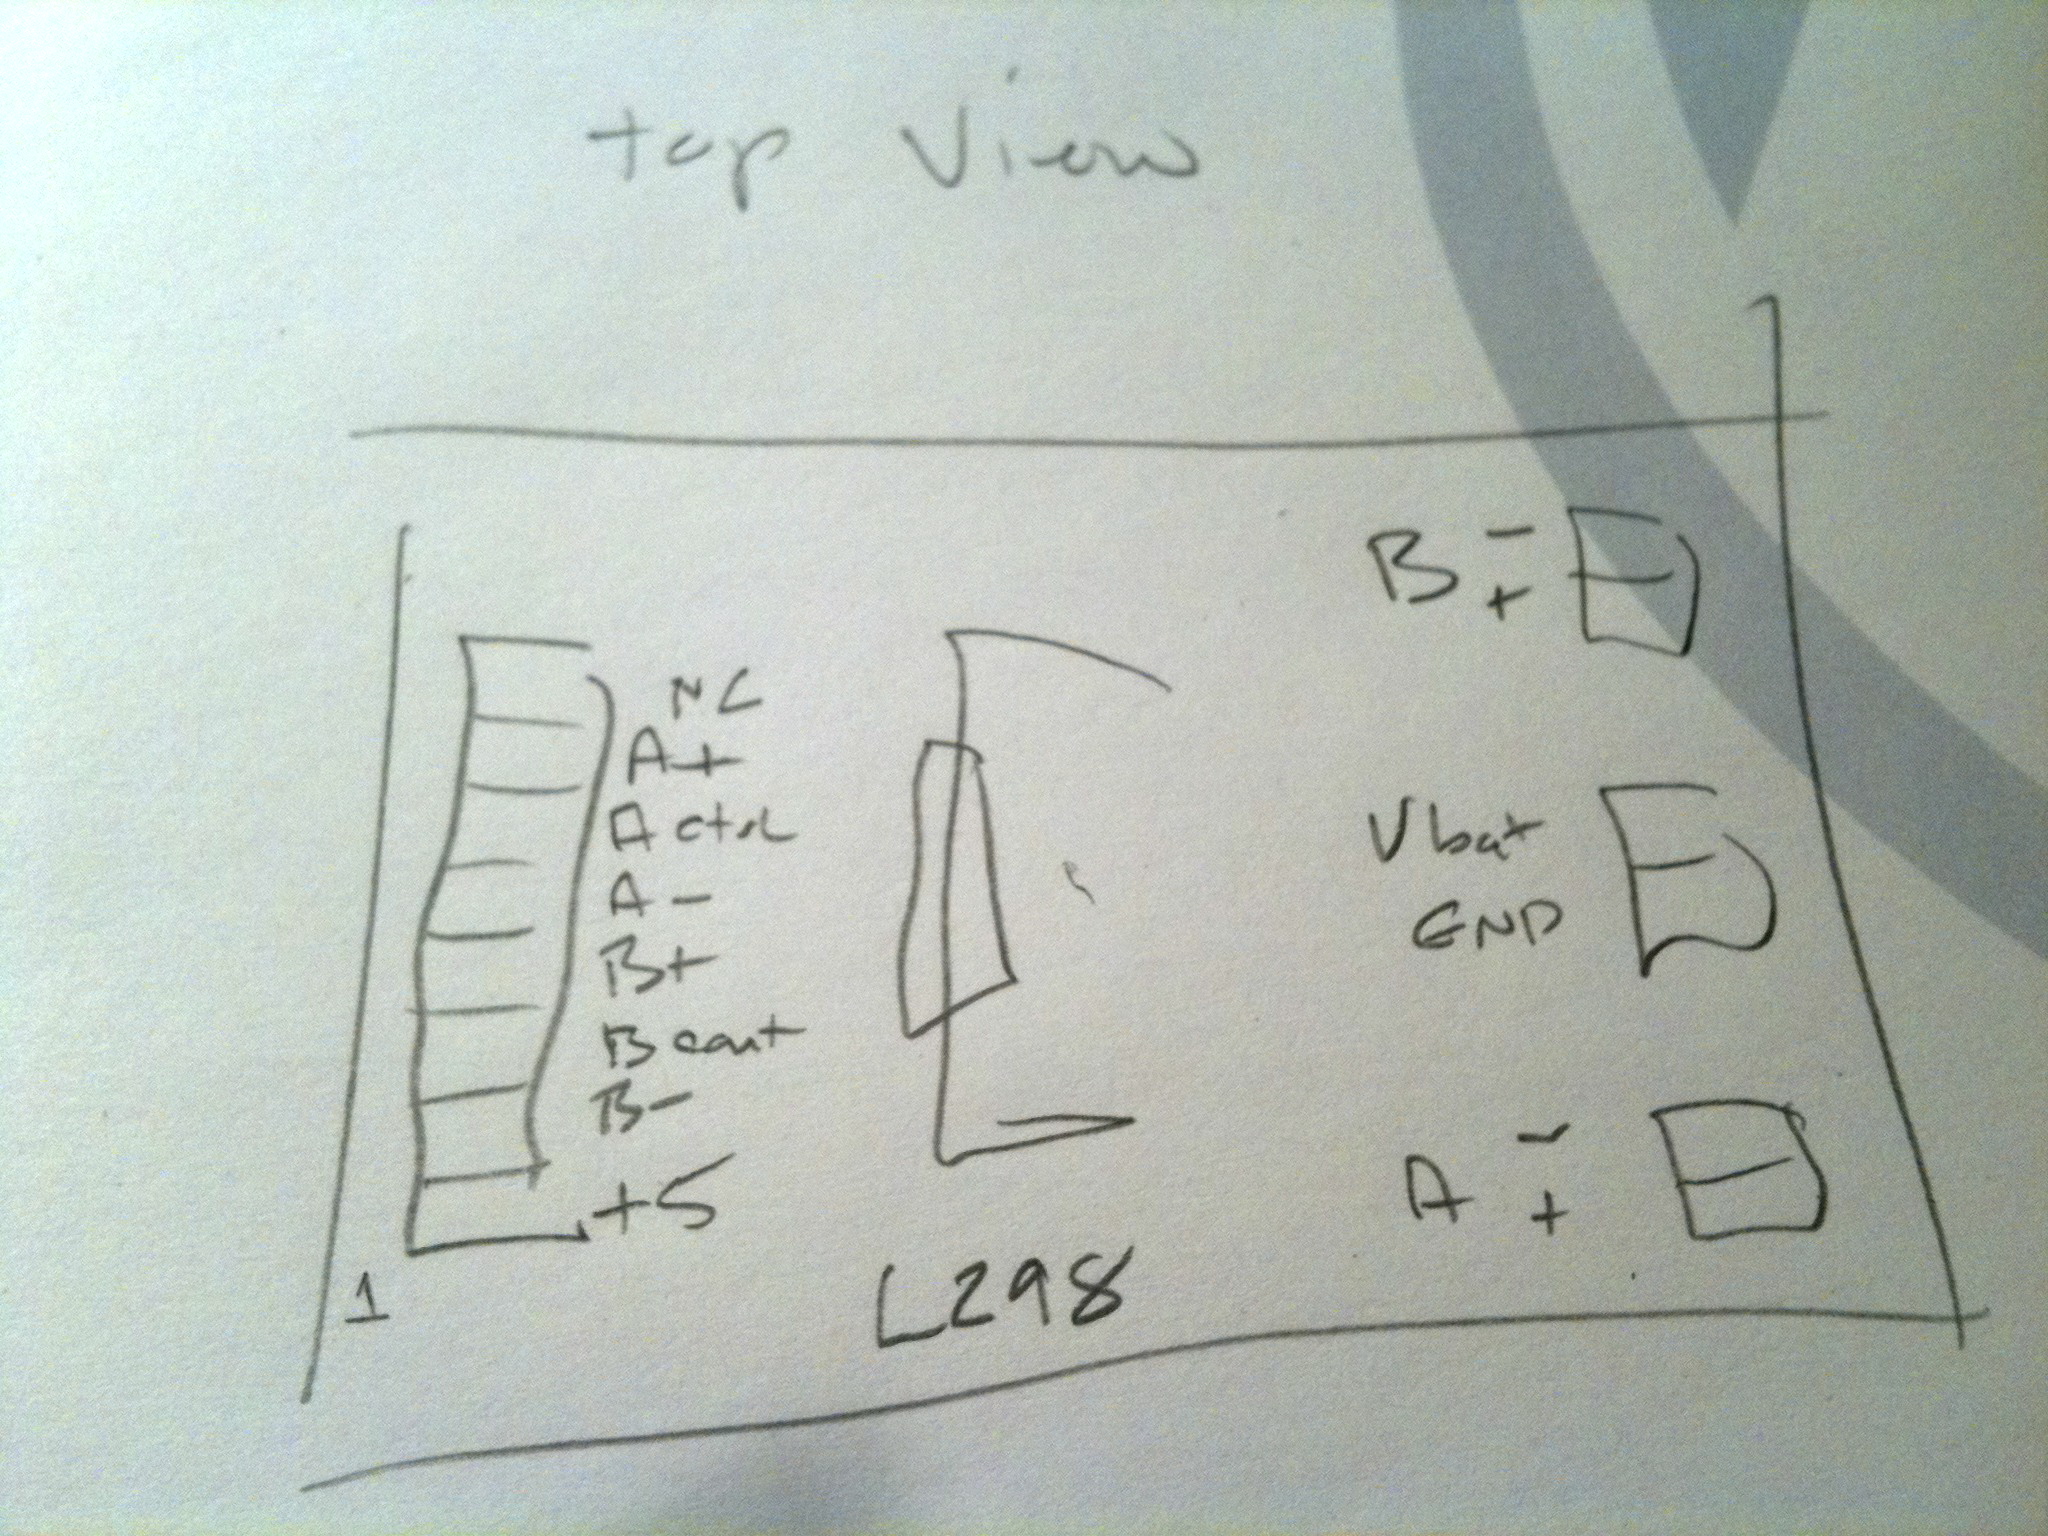 top View
NC
A+
A ctrl
A -
B+
B cont
B-
+5
1
L298
B - +
Vbat
GND
A - +